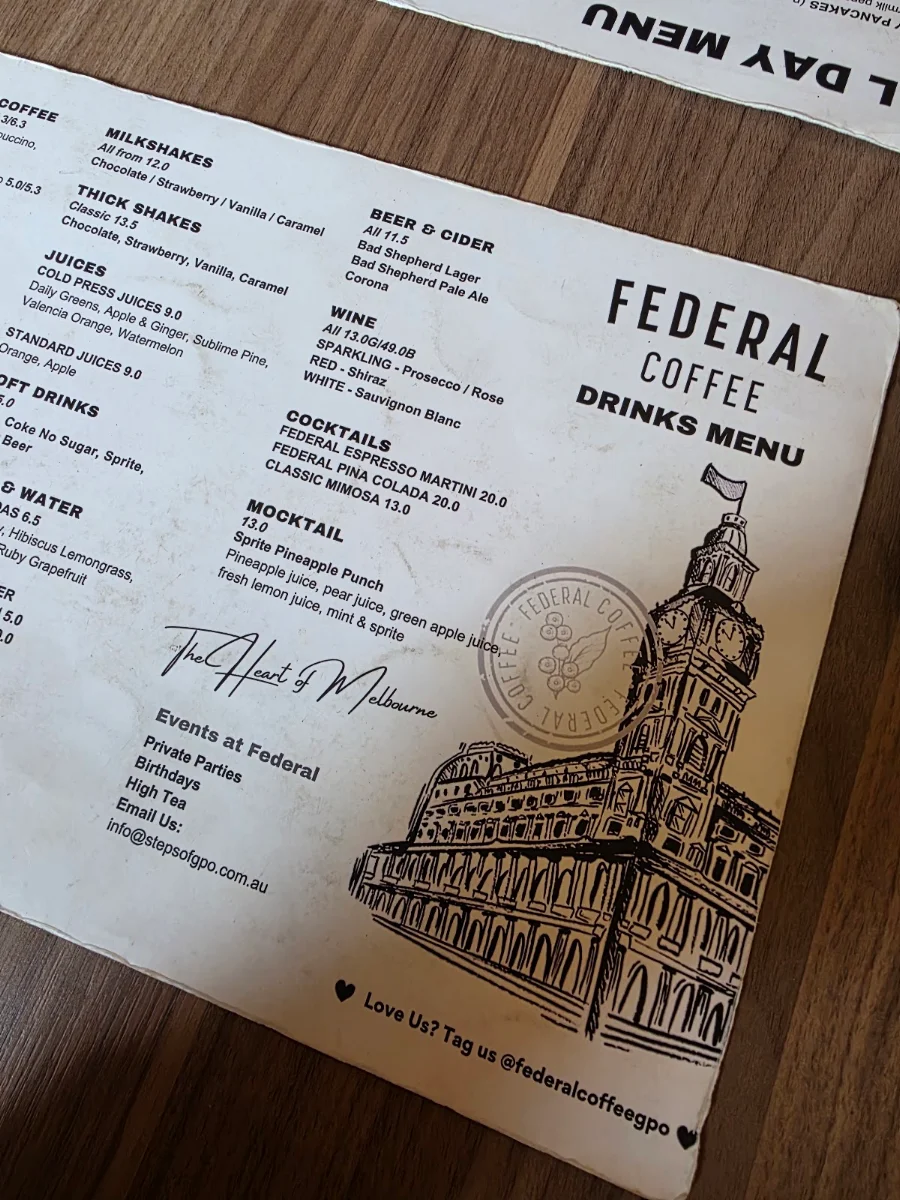 L DAY MENU
PANCAKES
COFFEE
3/6.3
5.0/5.3
MILKSHAKES
All from 12.0
Chocolate / Strawberry / Vanilla / Caramel
THICK SHAKES
Classic 13.5
Chocolate, Strawberry, Vanilla, Caramel
JUICES
COLD PRESS JUICES 9.0
Daily Greens, Apple & Ginger, Sublime Pine,
Valencia Orange, Watermelon
STANDARD JUICES 9.0
Orange, Apple
OFT DRINKS
5.0
Coke No Sugar, Sprite,
Beer
& WATER
AS 6.5
Hibiscus Lemongrass,
Ruby Grapefruit
ER
5.0
.0
BEER & CIDER
All 11.5
Bad Shepherd Lager
Bad Shepherd Pale Ale
Corona
WINE
All 13.0G/49.0B
SPARKLING - Prosecco / Rose
RED - Shiraz
WHITE - Sauvignon Blanc
COCKTAILS
FEDERAL ESPRESSO MARTINI 20.0
FEDERAL PINA COLADA 20.0
CLASSIC MIMOSA 13.0
MOCKTAIL
13.0
Sprite Pineapple Punch
Pineapple juice, pear juice, green apple juice,
fresh lemon juice, mint & sprite
The Heart of Melbourne
Events at Federal
Private Parties
Birthdays
High Tea
Email Us:
info@stepsofgpo.com.au
FEDERAL
COFFEE
DRINKS MENU
FEDERAL COFFEE · FEDERAL COFFEE
Love Us? Tag us @federalcoffeegpo